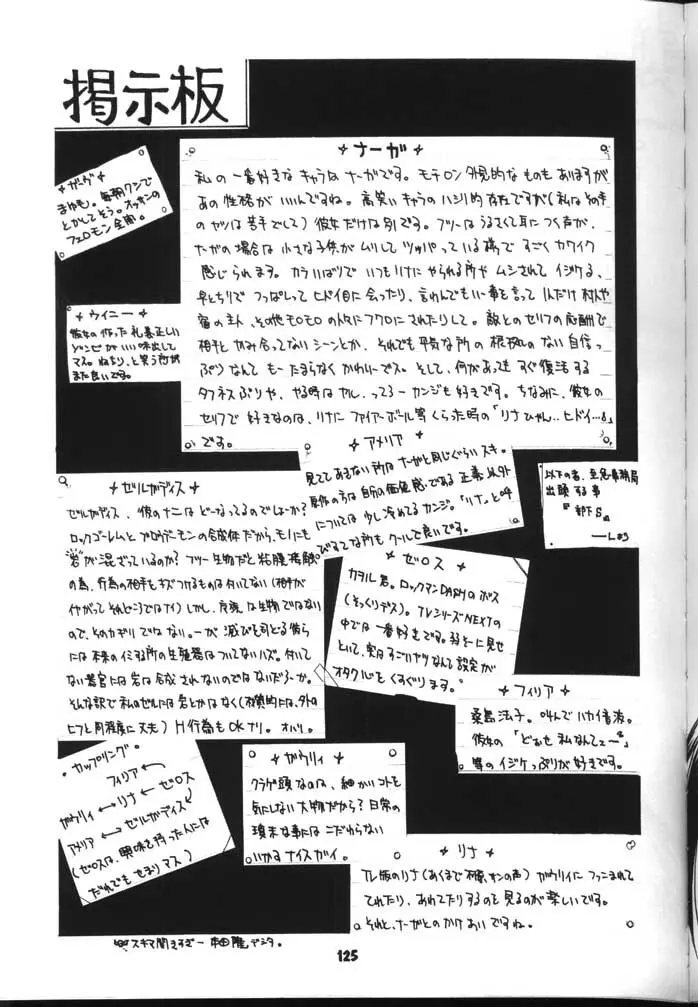 掲示板
ナーガ
私の一番好きなキャラはナーガです。モチロン外見的なものもありますが
あの性格がいいんですね。高笑いキャラのハシリ的存在ですが(私はこの手
のヤツは苦手でして)彼女だけは別です。フツーはうるさくて耳につく声が、
ナーガの場合は小さな子供がムリしてツッパっている様ですごくカワイク
感じられます。カラいばりでいつもリナにやられる所やムシされてイジケる、
早とちりでつっぱしってヒドイ目に会ったり、言わんでもい〜事を言って
宿の主人、その他モロモロの人々にフクロにされたりして。敵とのセリフの応酬で
相手とかみ合ってないシーンとか、それでも平気な所の根拠のない自信っ
ぷりなんてもーたまらなくかわいーでス。そして、何があってもすぐ復活する
タフネスぶりや、やる時はヤル、ってろーカンジも好きです。ちなみに、彼女の
セリフで好きなのは、リナにファイアーボール等くらった時の「リナひゃん‥ヒドイ…」
です。
ガーヴ
まゆも。毎朝クシで
とかしてそう。オッサンの
フェロモン全開。
ウイニー
彼女の作った礼義正しい
ゾンビがいい味出して
マス。ねちり、と笑う
また良いです。
アメリア
見ててあきない所はナーガと同じぐらいスキ。
原作の方は自分の価値感である正義以外
については少し冷めてるカンジ。「リナ」と呼
びすてな所もクールで良いです。
以下の者、至急事務局
出頭する事
『部下S』
ゼルガディス
ゼルガディス、彼のナニはどーなってるのでしょーか?
ロックゴーレムとブロウデーモンの合成体だから、モノにも
“岩”が混ざっているのか?フツー生物だと粘膜接触
の為、行為の相手をキズつけるものは付いてない(相手が
イヤがってそれどころではナイ)しかし、
ので、そのカギリではない。
には本来のイミする所の生殖器はついてないハズ。付いて
ない器官には岩は合成されないのではないだろーか。
そんな訳で私のゼルには岩とかはなく(
ヒフと同程度に丈夫)H行為もOKナリ。オハリ
ゼロス
カヲル君。ロックマンDASHのボス
(そっくりデス)。TVシリーズNEXTの
中では一番好きです。弱そーに見せ
といて、実はすごいヤツなんて設定が
オタク心をくすぐります。
フィリア
桑島法子。叫んでハカイ音波。
彼女の「どぉせ私なんてェ〜」
等のイジケっぷりが好きです。
カップリング
フィリア
ガウリィ ←→ リナ ← ゼロス
アメリア ←→ ゼルガディス
(ゼロスは、興味を持った人には
だれでもせまりマス)
ガウリィ
クラゲ頭なのは、細かいコトを
気にしない大物だから?日常の
瑣末な事にはこだわらない
いかすナイスガイ。
リナ
TV版のリナ(あくまで林原サンの声)ガウリイにツッコまれて
てれたり、あわてたりするのを見るのが楽しいです。
それと、ナーガとのかけあいですね。
スキマ開きすぎー
125